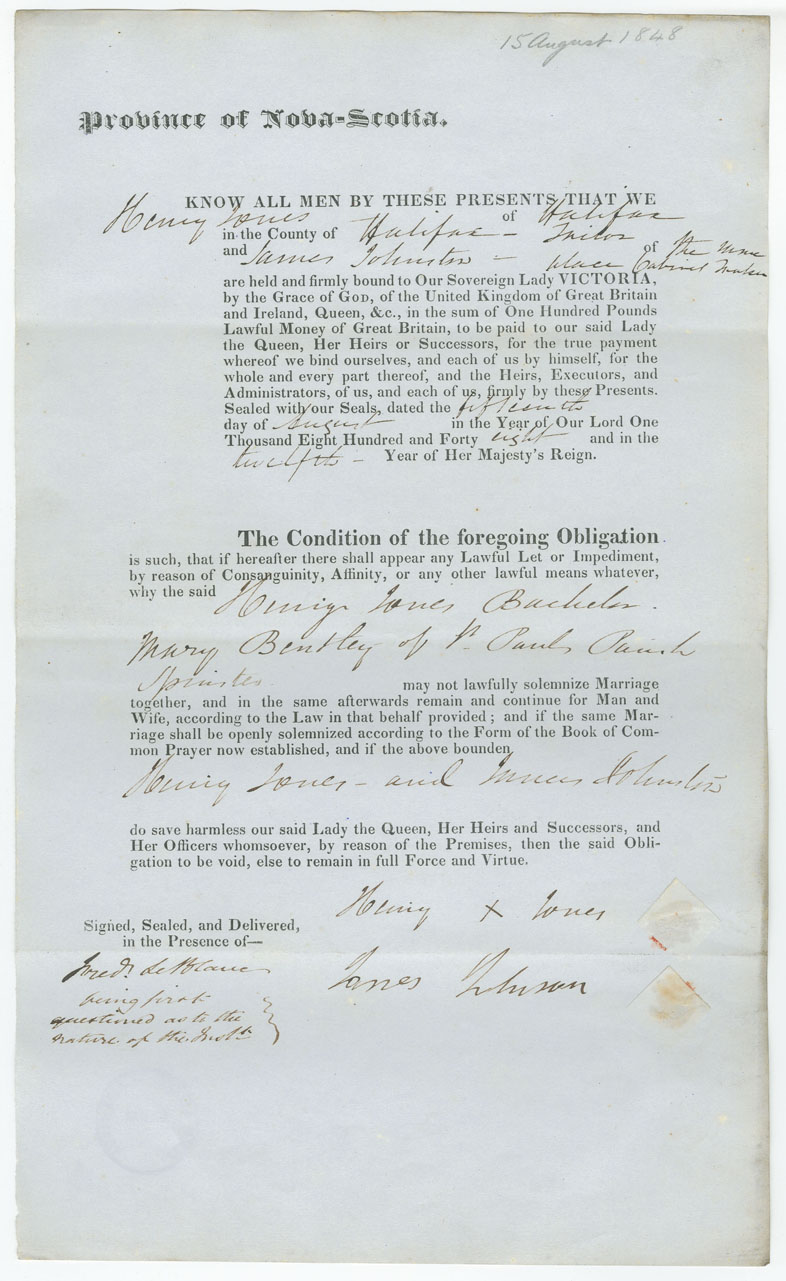 15 August 1848
Province of Nova-Scotia.
KNOW ALL MEN BY THESE PRESENTS THAT WE
Henry Jones of Halifax
in the County of Halifax — Tailor
and James Johnston — of the same
place Cabinet Maker
are held and firmly bound to Our Sovereign Lady VICTORIA,
by the Grace of GOD, of the United Kingdom of Great Britain
and Ireland, Queen, &c., in the sum of One Hundred Pounds
Lawful Money of Great Britain, to be paid to our said Lady
the Queen, Her Heirs or Successors, for the true payment
whereof we bind ourselves, and each of us by himself, for the
whole and every part thereof, and the Heirs, Executors, and
Administrators, of us, and each of us, firmly by these Presents.
Sealed with our Seals, dated the fifteenth
day of August in the Year of Our Lord One
Thousand Eight Hundred and Forty eight and in the
twelfth — Year of Her Majesty's Reign.
The Condition of the foregoing Obligation
is such, that if hereafter there shall appear any Lawful Let or Impediment,
by reason of Consanguinity, Affinity, or any other lawful means whatever,
why the said Henry Jones Bachelor.
Mary Bentley of St. Pauls Parish
Spinster may not lawfully solemnize Marriage
together, and in the same afterwards remain and continue for Man and
Wife, according to the Law in that behalf provided; and if the same Mar-
riage shall be openly solemnized according to the Form of the Book of Com-
mon Prayer now established, and if the above bounden
Henry Jones — and James Johnston
do save harmless our said Lady the Queen, Her Heirs and Successors, and
Her Officers whomsoever, by reason of the Premises, then the said Obli-
gation to be void, else to remain in full Force and Virtue.
Henry X Jones
Signed, Sealed, and Delivered,
in the Presence of—
Fredk LeBlanc
James Johnson
being first
questioned as to the
nature of the Instt